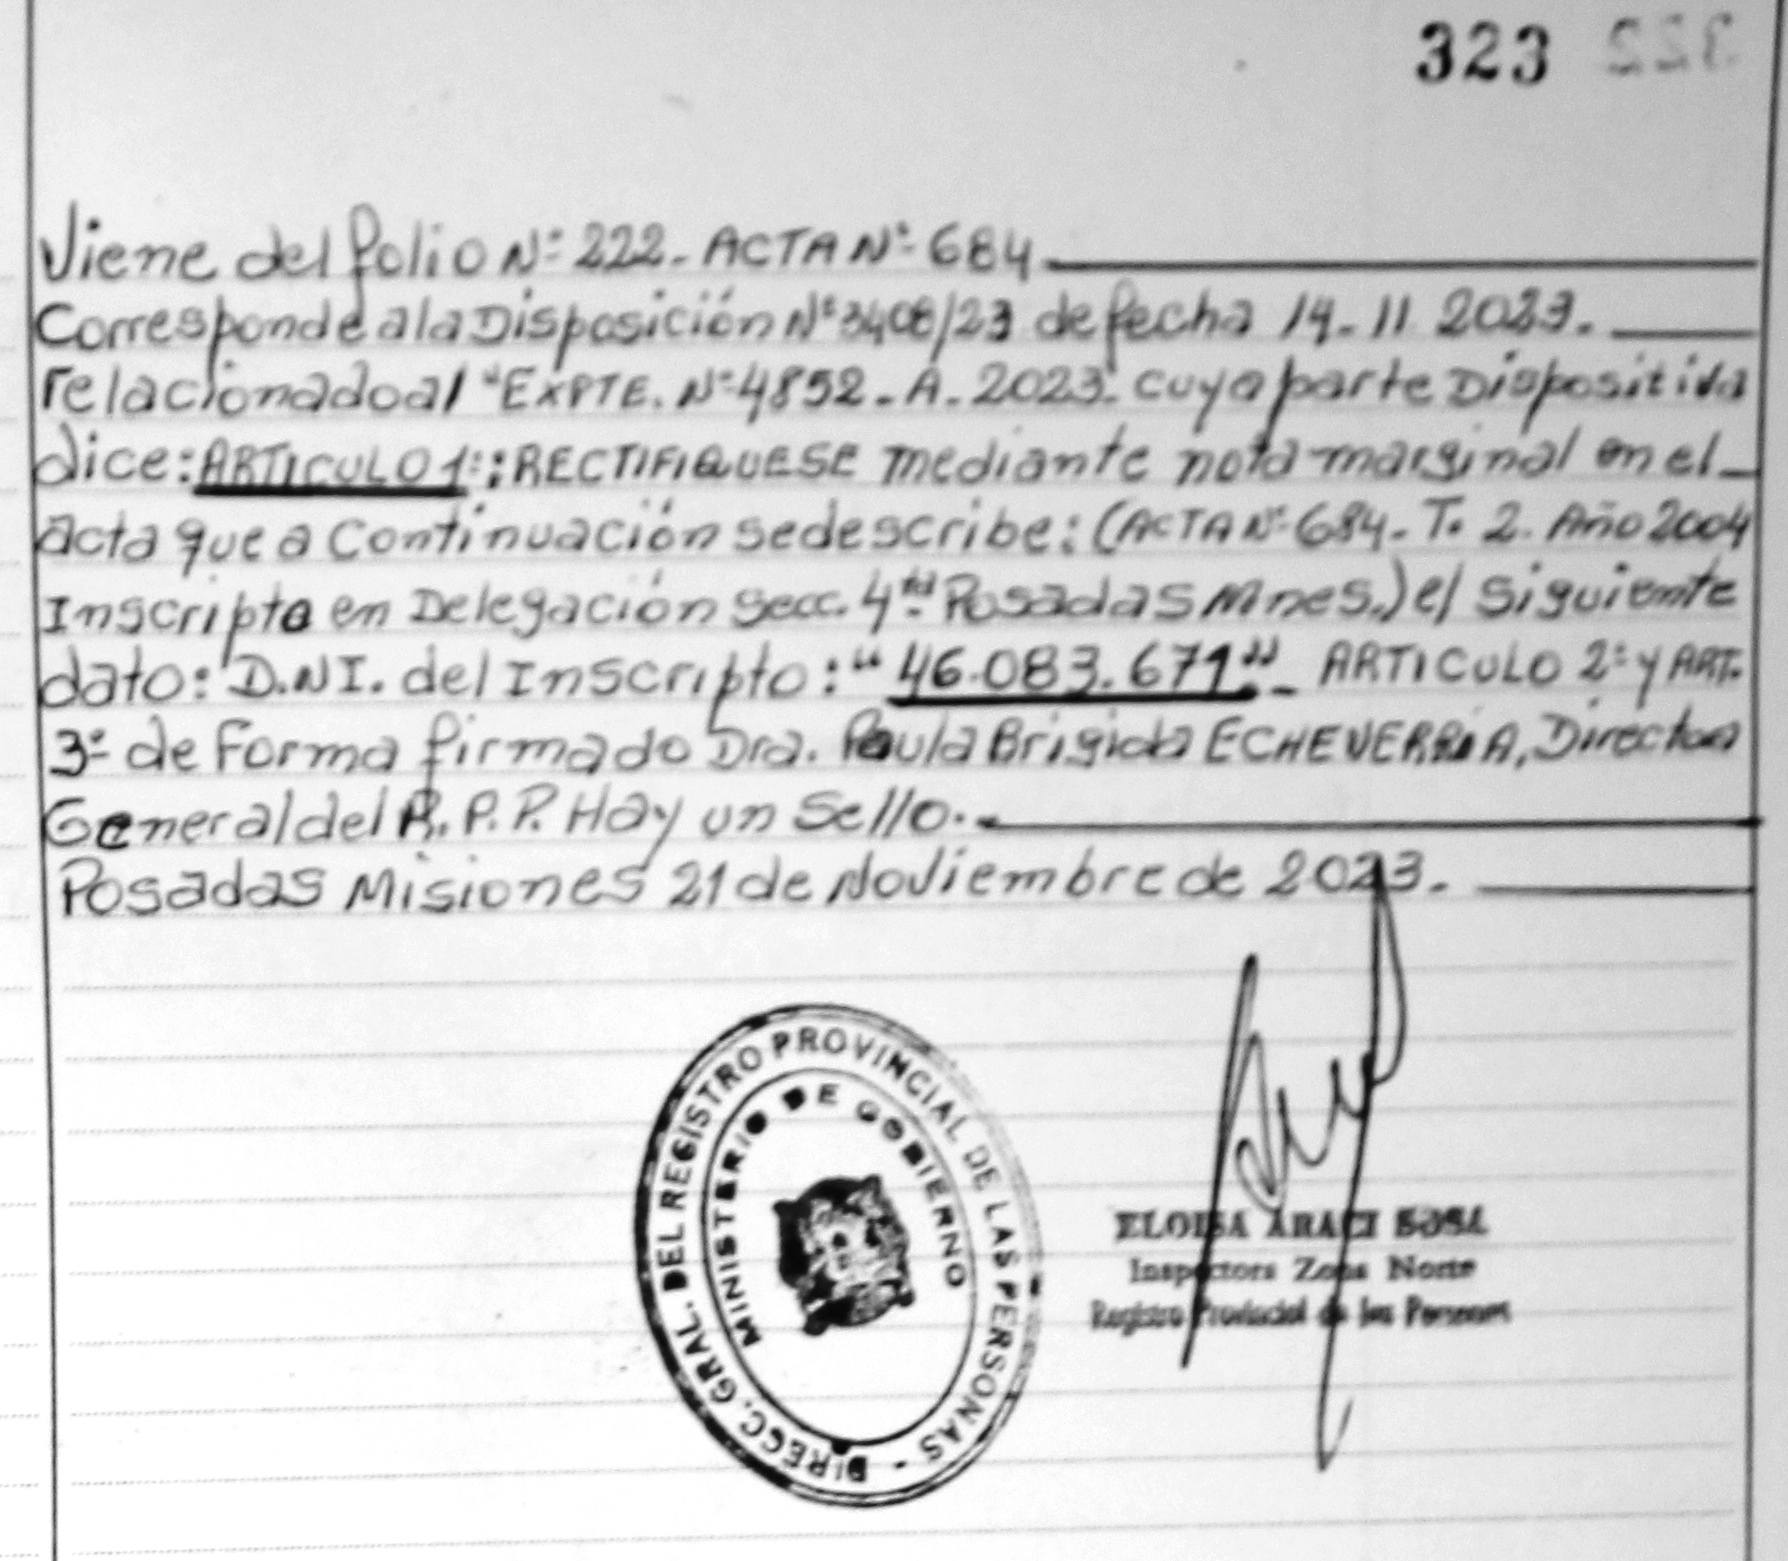 323
222
Viene del folio Nº 222. ACTA Nº 684
Corresponde a la Disposición Nº 3408/23 de fecha 14-11 2023.
relacionado al "EXPTE. Nº 4852-A-2023. cuya parte Dispositiva
dice: ARTICULO 1º: RECTIFIQUESE mediante nota marginal en el
acta que a Continuación se describe: (ACTA Nº 684. T. 2. Año 2004
Inscripta en Delegación Secc. 4ta Posadas Mnes.) el Siguiente
dato: D.NI. del Inscripto: "46.083.671". ARTICULO 2º y ART.
3º de Forma firmado Dra. Paula Brigida ECHEVERRIA, Directora
General del R.P.P. Hay un Sello.
Posadas Misiones 21 de Noviembre de 2023.
DIRECC. GRAL. DEL REGISTRO PROVINCIAL DE LAS PERSONAS -
MINISTERIO DE GOBIERNO
ELOISA ARACI SOSA
Inspectora Zona Norte
Registro Provincial de las Personas